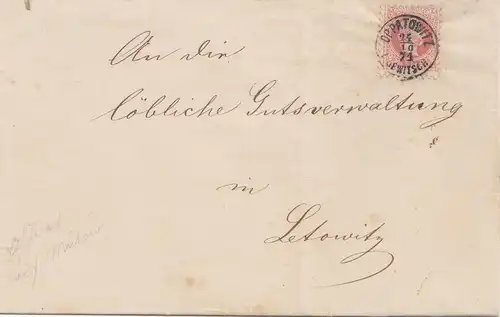 OPPATOWITZ
24
10
71
GEWITSCH
An die
löbliche Gutsverwaltung
in
Letowitz